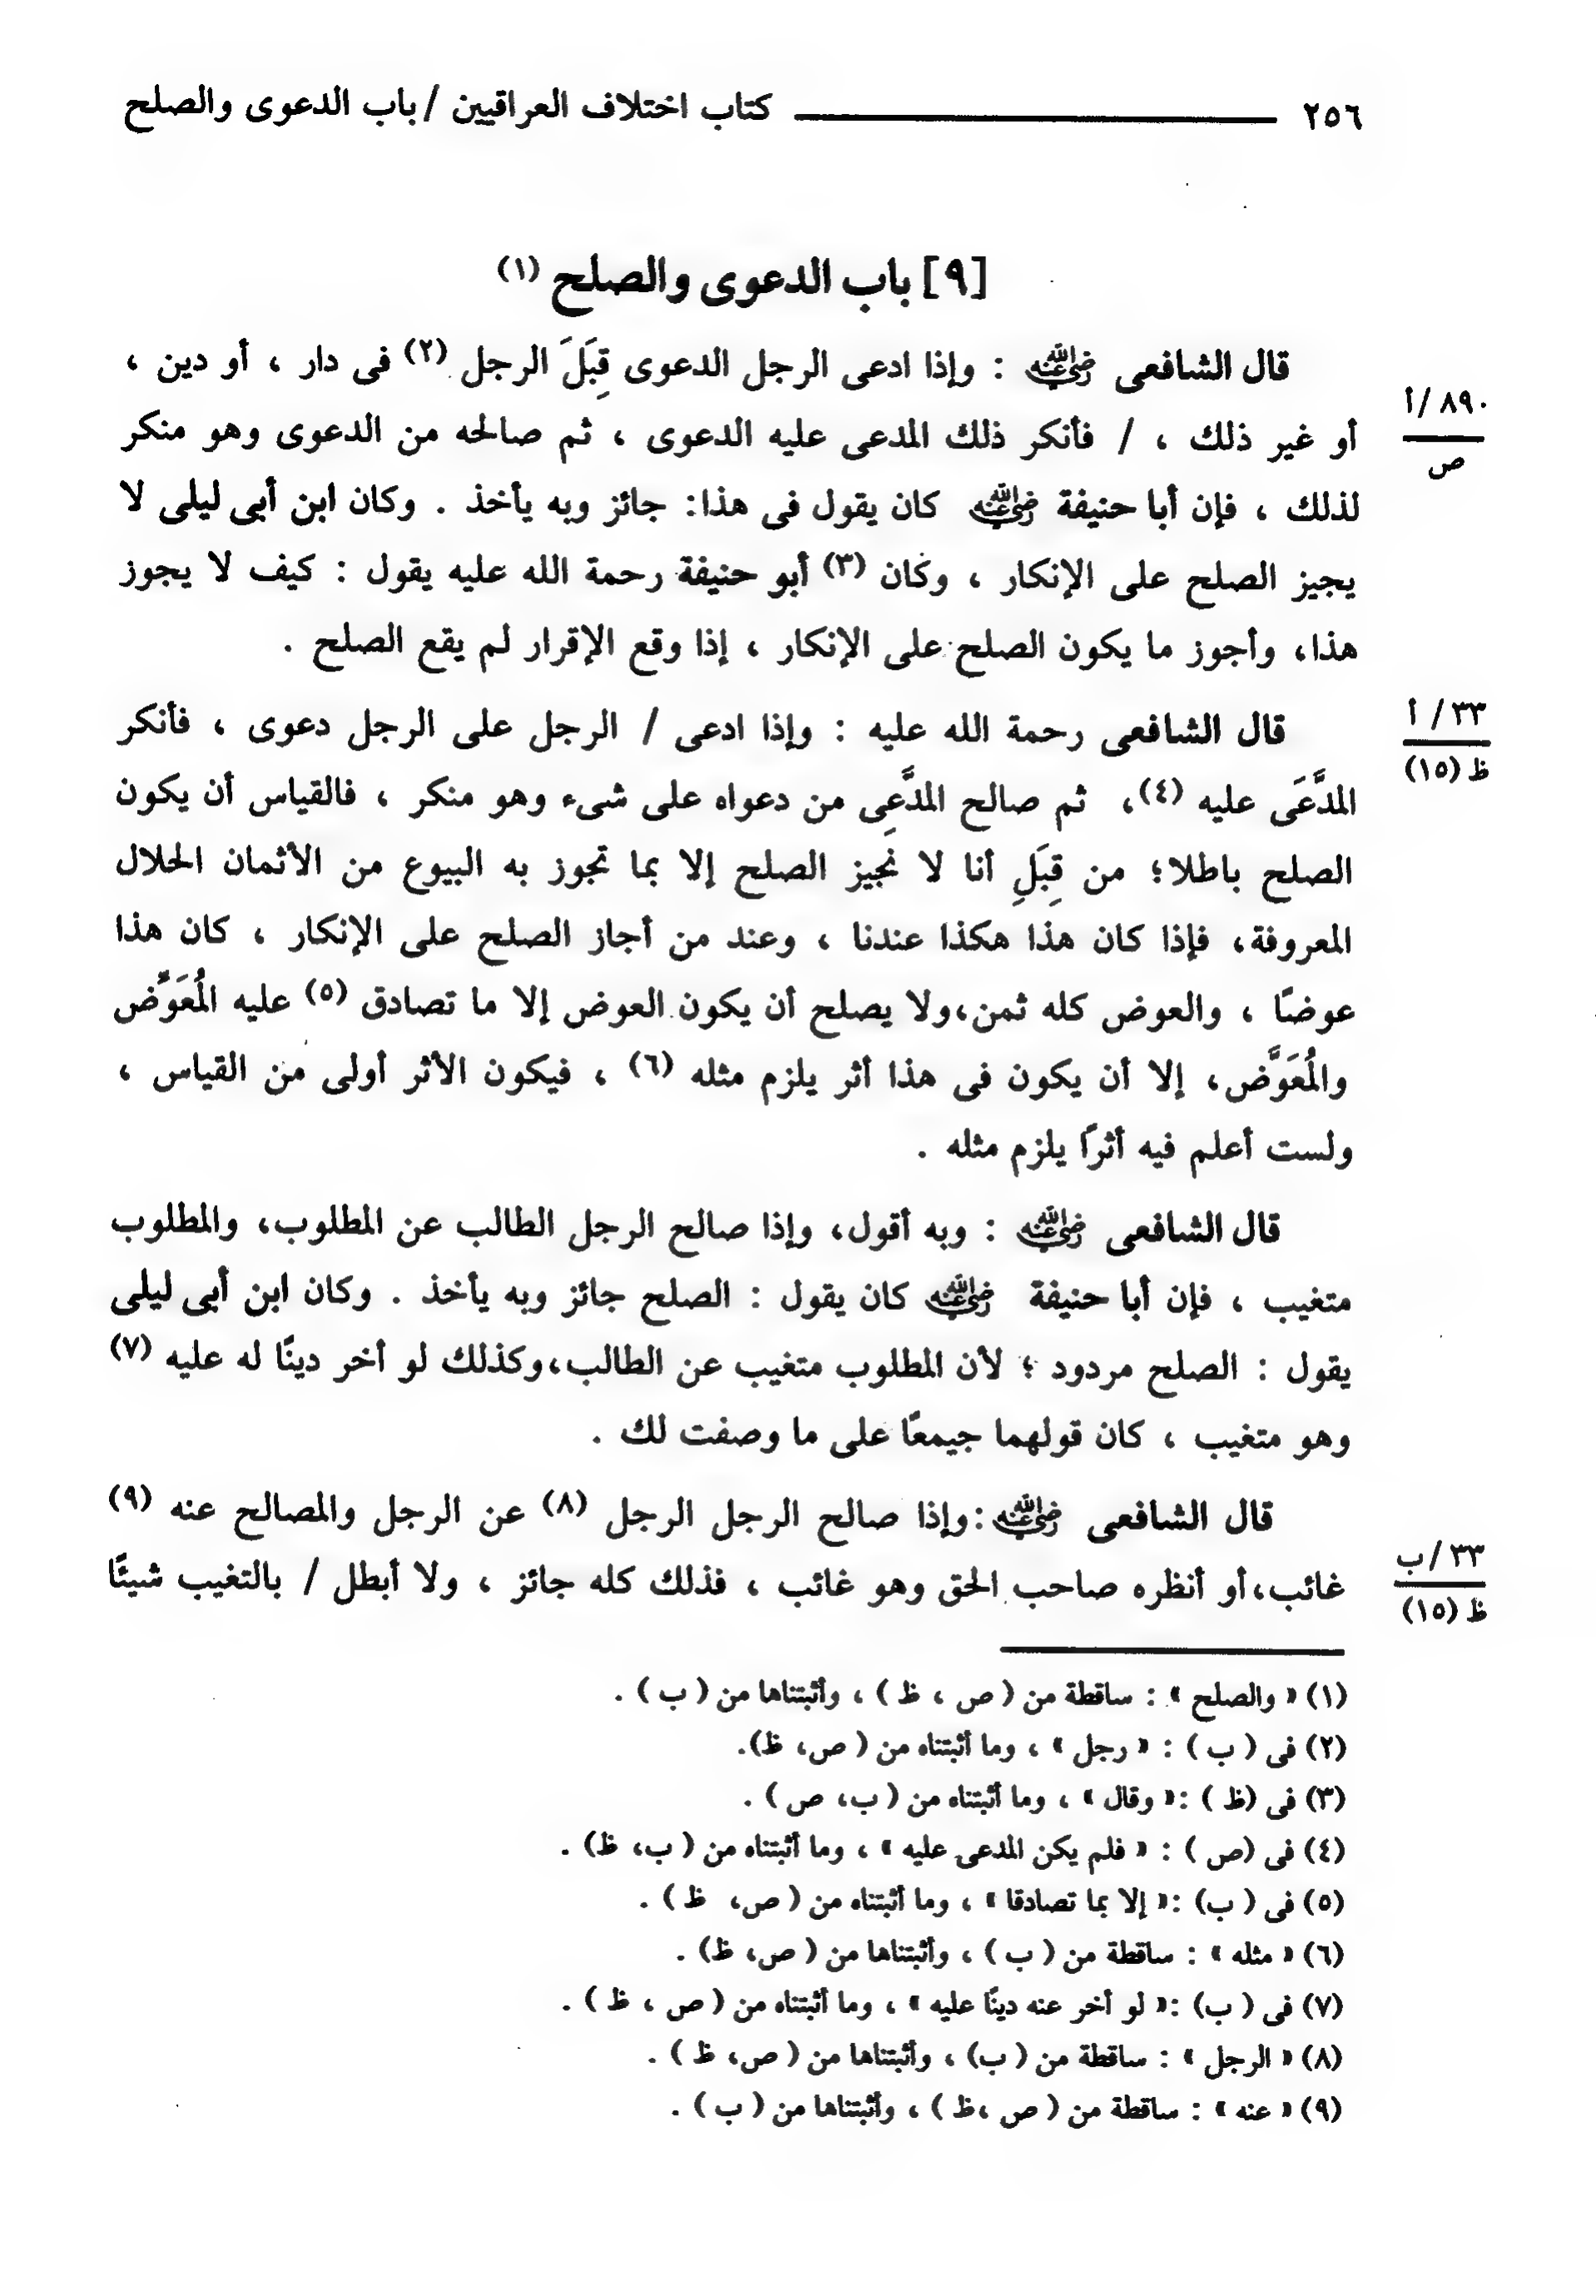 ٢٥٦ كتاب اختلاف العراقيين / باب الدعوى والصلح
[٩] باب الدعوى والصلح (١)
قال الشافعى رضي الله عنه : وإذا ادعى الرجل الدعوى قِبَلَ الرجل (٢) فى دار ، أو دين ،
٨٩٠/أ
ص
أو غير ذلك ، / فأنكر ذلك المدعى عليه الدعوى ، ثم صالحه من الدعوى وهو منكر
لذلك ، فإن أبا حنيفة رضي الله عنه كان يقول فى هذا: جائز وبه يأخذ . وكان ابن أبى ليلى لا
يجيز الصلح على الإنكار ، وكان (٣) أبو حنيفة رحمة الله عليه يقول : كيف لا يجوز
هذا، وأجوز ما يكون الصلح على الإنكار ، إذا وقع الإقرار لم يقع الصلح .
قال الشافعى رحمة الله عليه : وإذا ادعى / الرجل على الرجل دعوى ، فأنكر
٣٣ / أ
ظ (١٥)
المدَّعَى عليه (٤)، ثم صالح المدَّعِى من دعواه على شىء وهو منكر ، فالقياس أن يكون
الصلح باطلا؛ من قِبَلِ أنا لا نجيز الصلح إلا بما تجوز به البيوع من الأثمان الحلال
المعروفة، فإذا كان هذا هكذا عندنا ، وعند من أجاز الصلح على الإنكار ، كان هذا
عوضًا ، والعوض كله ثمن،ولا يصلح أن يكون العوض إلا ما تصادق (٥) عليه المُعَوِّض
والمُعَوَّض، إلا أن يكون فى هذا أثر يلزم مثله (٦) ، فيكون الأثر أولى من القياس ،
ولست أعلم فيه أثرًا يلزم مثله .
قال الشافعى رضي الله عنه : وبه أقول، وإذا صالح الرجل الطالب عن المطلوب، والمطلوب
متغيب ، فإن أبا حنيفة رضي الله عنه كان يقول : الصلح جائز وبه يأخذ . وكان ابن أبى ليلى
يقول : الصلح مردود ؛ لأن المطلوب متغيب عن الطالب،وكذلك لو أخر دينًا له عليه (٧)
وهو متغيب ، كان قولهما جيمعًا على ما وصفت لك .
قال الشافعى رضي الله عنه :وإذا صالح الرجل الرجل (٨) عن الرجل والمصالح عنه (٩)
٣٣ /ب
ظ (١٥)
غائب،أو أنظره صاحب الحق وهو غائب ، فذلك كله جائز ، ولا أبطل / بالتغيب شيئًا
(١) « والصلح » : ساقطة من ( ص ، ظ ) ، وأثبتناها من ( ب ) .
(٢) فى ( ب ) : « رجل » ، وما أثبتناه من ( ص، ظ).
(٣) فى (ظ ) :« وقال » ، وما أثبتناه من ( ب، ص ) .
(٤) فى (ص ) : « فلم يكن المدعى عليه » ، وما أثبتناه من ( ب، ظ) .
(٥) فى ( ب) :« إلا بما تصادقا » ، وما أثبتناه من ( ص، ظ ) .
(٦) « مثله » : ساقطة من ( ب ) ، وأثبتناها من ( ص، ظ) .
(٧) فى ( ب) :« لو أخر عنه دينًا عليه » ، وما أثبتناه من ( ص ، ظ ) .
(٨) « الرجل » : ساقطة من ( ب) ، وأثبتناها من ( ص، ظ ) .
(٩) « عنه » : ساقطة من ( ص ،ظ ) ، وأثبتناها من ( ب ) .